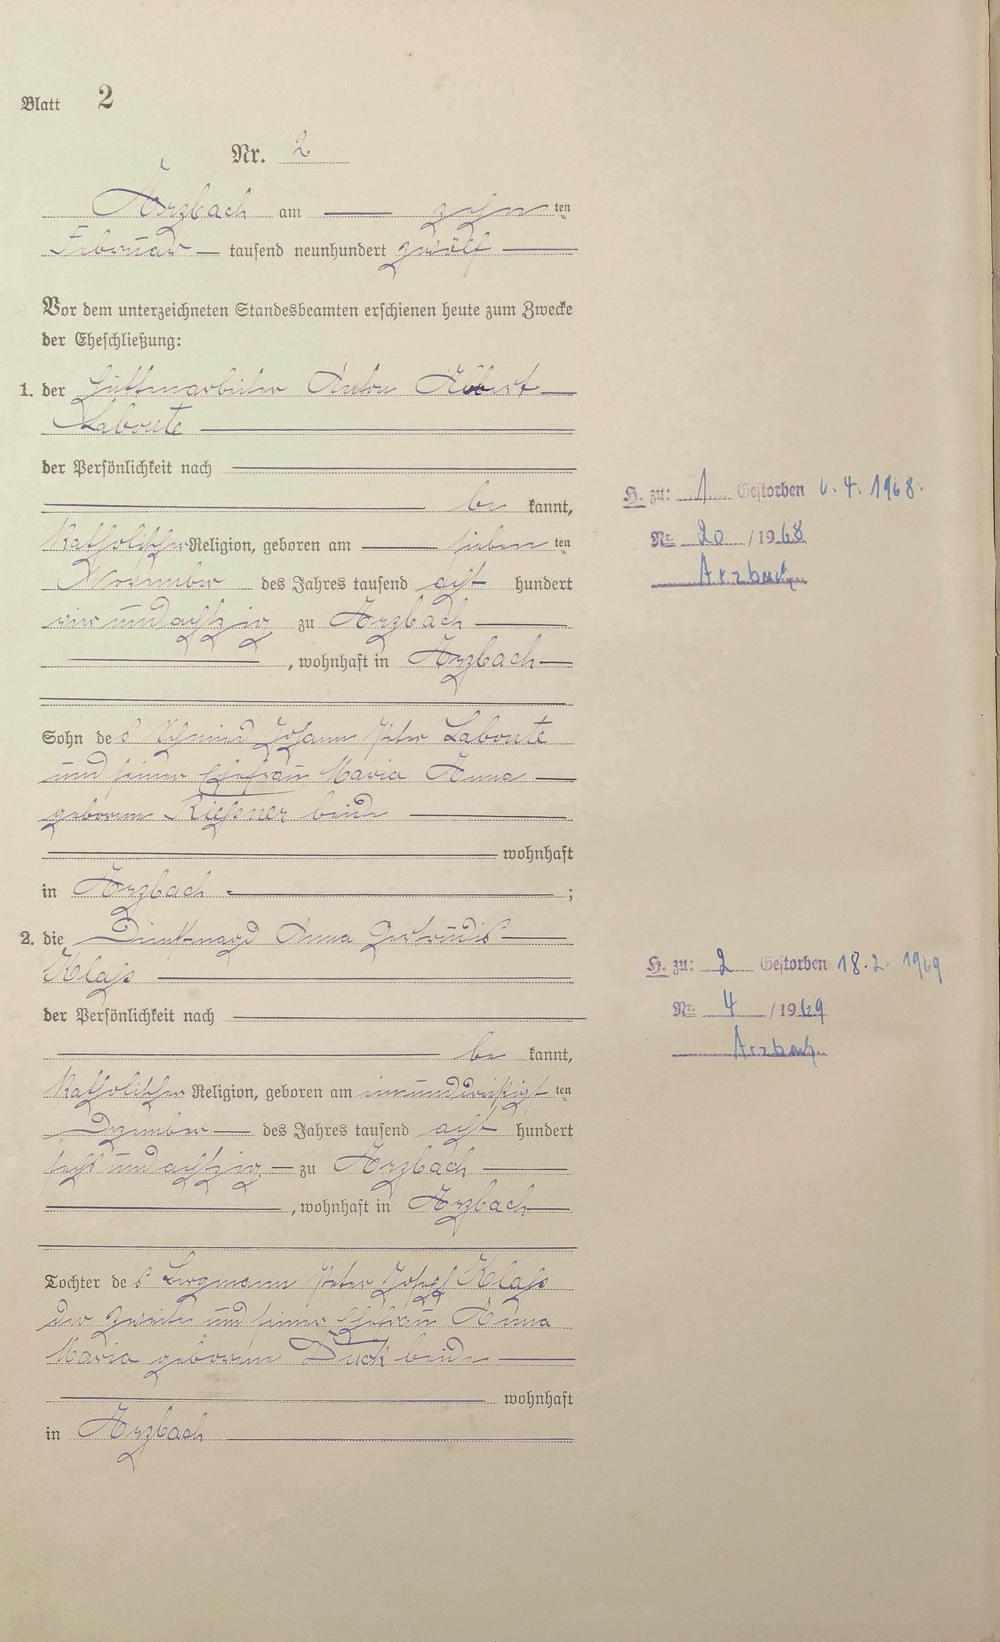 Blatt 2
Nr. 2
Arzbach am zehn ten
Februar tausend neunhundert zwölf
Vor dem unterzeichneten Standesbeamten erschienen heute zum Zwecke
der Eheschließung:
1. der Hüttenarbeiter Anton Albert
Laboute
der Persönlichkeit nach
be kannt,
Katholischer Religion, geboren am sieben ten
November des Jahres tausend acht hundert
vier und achtzig zu Arzbach
, wohnhaft in Arzbach
Sohn des Schmied Johann Peter Laboute
und seiner Ehefrau Maria Anna
geborene beide
wohnhaft
in Arzbach ;
2. die Dienstmagd Anna Gertrudis
Klaß
der Persönlichkeit nach
be kannt,
Katholischer Religion, geboren am einunddreißigst ten
Dezember des Jahres tausend acht hundert
sechs und achtzig zu Arzbach
, wohnhaft in Arzbach
Tochter des Bergmann Peter Josef Klaß
der Zweite und seiner Ehefrau Anna
Maria geborene Duck beide
wohnhaft
in Arzbach
H. zu: 1 Gestorben 6.4.1968.
Nr. 20 /1968
Arzbach
H. zu: 2 Gestorben 18.2.1969
Nr. 4 /1969
Arzbach